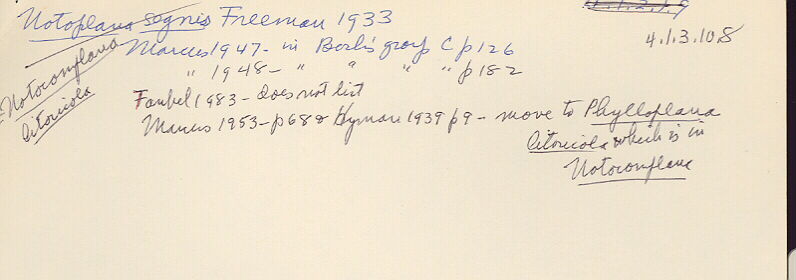 Notoplana segnis Freeman 1933
4.1.3.9
4.1.3.10.8
Marcus 1947 - in Bock's group C p 126
" 1948 - " " " " p 182
= Notocomplana
litoricola
Faubel 1983 - does not list
Marcus 1953 - p 68 & Hyman 1939 p 9 - move to Phylloplana
litoricola which is in
Notocomplana